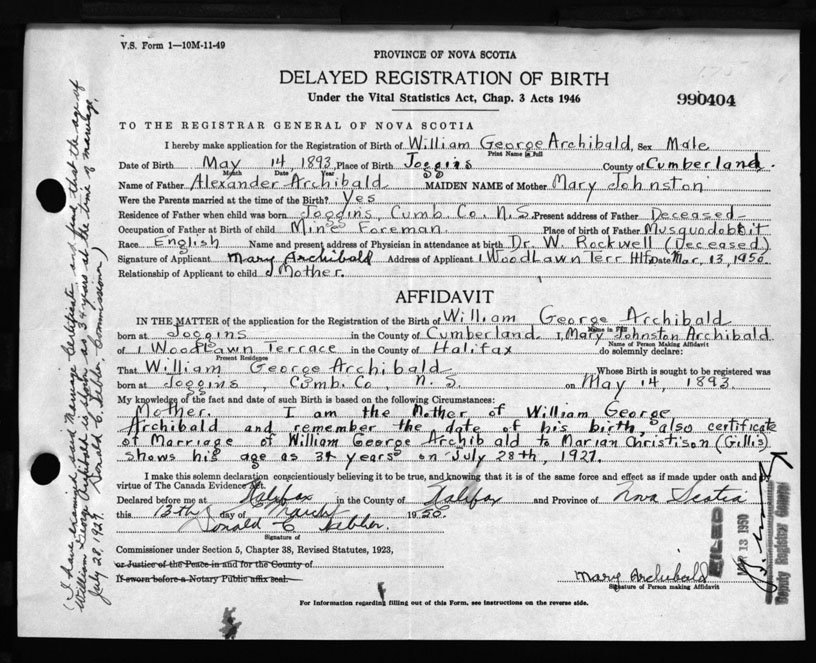 V.S. Form 1—10M-11-49
PROVINCE OF NOVA SCOTIA
DELAYED REGISTRATION OF BIRTH
Under the Vital Statistics Act, Chap. 3 Acts 1946
990404
TO THE REGISTRAR GENERAL OF NOVA SCOTIA
I hereby make application for the Registration of Birth of William George Archibald, Sex Male
Print Name in full
Date of Birth May 14, 1893, Place of Birth Joggins County of Cumberland.
Month Date Year
Name of Father Alexander Archibald MAIDEN NAME of Mother Mary Johnston
Were the Parents married at the time of the Birth? Yes
Residence of Father when child was born Joggins, Cumb. Co. N.S. Present address of Father Deceased
Occupation of Father at Birth of child Mine Foreman. Place of birth of Father Musquodobbit
Race English Name and present address of Physician in attendance at birth Dr. W. Rockwell (Deceased)
Signature of Applicant Mary Archibald Address of Applicant 1 WoodLawn Terr Hfx Date Mar. 13, 1950.
Relationship of Applicant to child Mother.
AFFIDAVIT
IN THE MATTER of the application for the Registration of the Birth of William George Archibald
Name in Full
born at Joggins in the County of Cumberland I, Mary Johnston Archibald
Name of Person Making Affidavit
of 1 WoodLawn Terrace in the County of Halifax do solemnly declare:
Present Residence
That William George Archibald Whose Birth is sought to be registered was
born at Joggins, Cumb. Co, N. S. on May 14, 1893.
My knowledge of the fact and date of such Birth is based on the following Circumstances:
Mother. I am the Mother of William George
Archibald and remember the date of his birth, also certificate
of Marriage of William George Archibald to Marian Christison (Gillis)
shows his age as 34 years on July 28th, 1927.
I make this solemn declaration conscientiously believing it to be true, and knowing that it is of the same force and effect as if made under oath and by
virtue of The Canada Evidence Act.
Declared before me at Halifax in the County of Halifax and Province of Nova Scotia
this 13th day of March 1950.
Donald C
Signature of
Commissioner under Section 5, Chapter 38, Revised Statutes, 1923,
or Justice of the Peace in and for the County of
If sworn before a Notary Public affix seal.
Mary Archibald
Signature of Person making Affidavit
For Information regarding filling out of this Form, see instructions on the reverse side.
(I have examined said Marriage Certificate and find that the age of
William George Archibald is given as 34 years at the time of marriage,
July 28, 1927. Donald C. Commissioner.)
FILED
MAR 13 1950
Deputy Registrar General